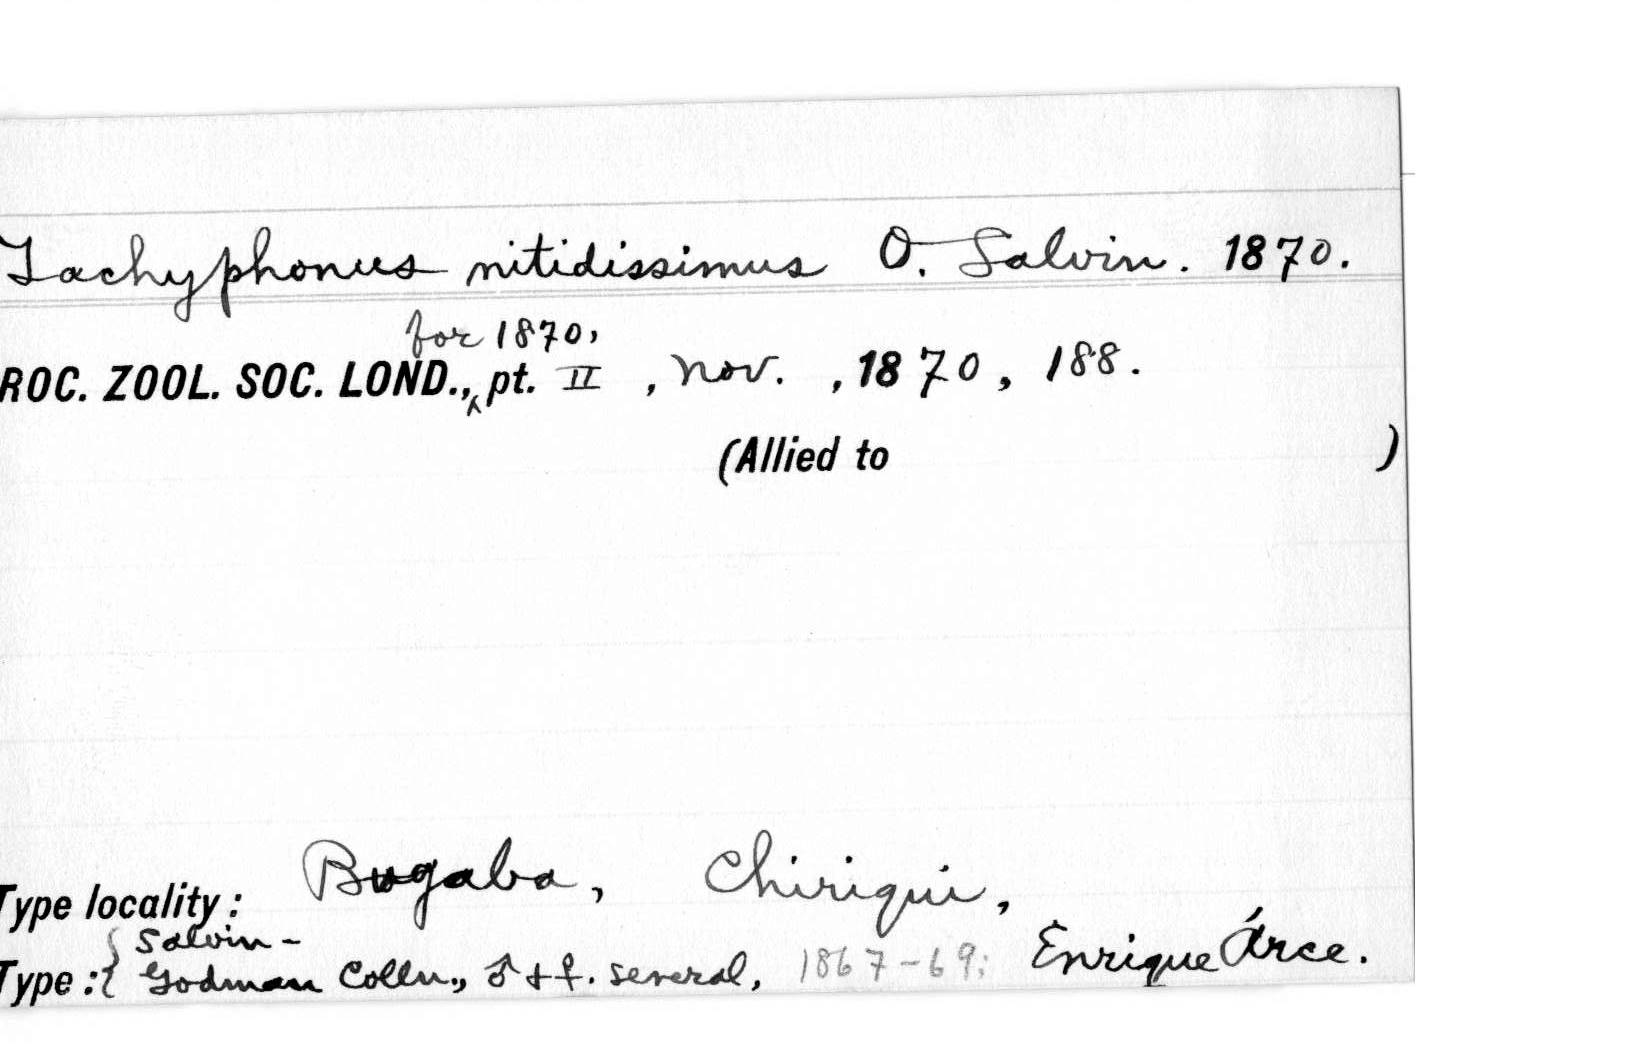 Tachyphonus nitidissimus O. Salvin. 1870.
for 1870,
ROC. ZOOL. SOC. LOND., ^ pt. II , Nov. , 1870, 188.
(Allied to )
Type locality: Bugaba, Chiriqui,
Salvin-
Type: Godman Colln., ♂ + ♀. several, 1867-69; Enrique Árce.